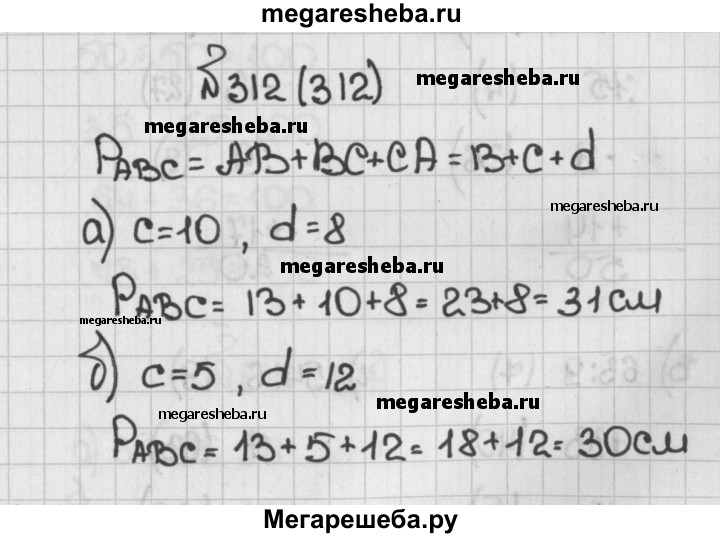 megaresheba.ru
№312 (312)
megaresheba.ru
megaresheba.ru
P_ABC = AB+BC+CA = 13+c+d
megaresheba.ru
а) c=10, d=8
megaresheba.ru
P_ABC = 13+10+8=23+8=31см
megaresheba.ru
б) c=5, d=12
megaresheba.ru
megaresheba.ru
P_ABC = 13+5+12=18+12=30см
Мегарешеба.ру